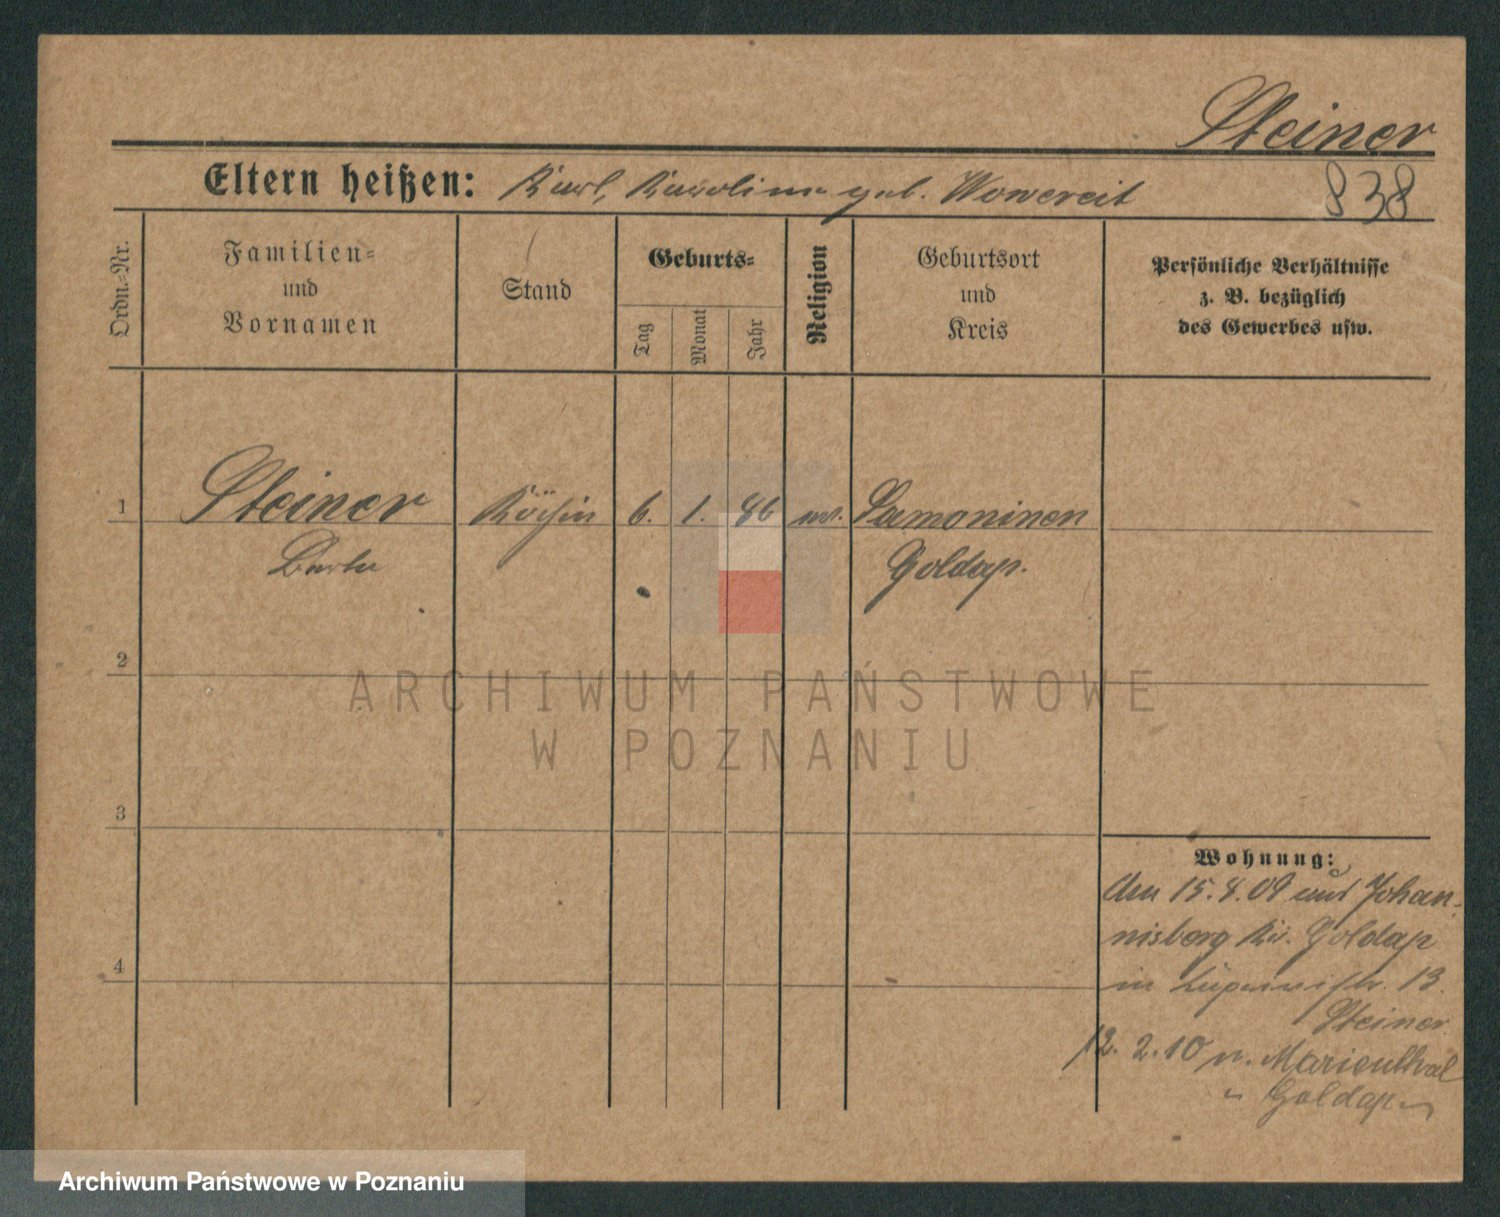 Steiner
Eltern heißen: Karl, Karoline geb. Wowereit
838
Ordn.-Nr.
Familien-
und
Vornamen
Stand
Geburts-
Tag
Monat
Jahr
Religion
Geburtsort
und
Kreis
Persönliche Verhältnisse
z. B. bezüglich
des Gewerbes usw.
1 Steiner Köchin 6. 1. 86 ev. Samoninen
Berta Goldap.
2
3
4
ARCHIWUM PAŃSTWOWE
W POZNANIU
Wohnung:
15.8.09 aus Johan-
nisberg Kr. Goldap
in 13.
Steiner
12. 2. 10 n. Marienthal
Goldap
Archiwum Państwowe w Poznaniu